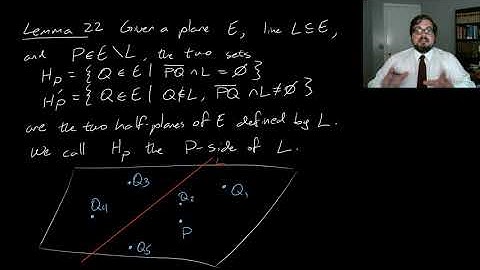 Lemma 22 Given a plane E, line L⊆E,
and P∈E\L, the two sets
H_P = { Q∈E | \overline{PQ} ∩ L = ∅ }
H'_P = { Q∈E | Q∉L, \overline{PQ} ∩ L ≠ ∅ }
are the two half-planes of E defined by L.
We call H_P the P-side of L.
L
Q3
Q1
Q4
Q2
P
Q5